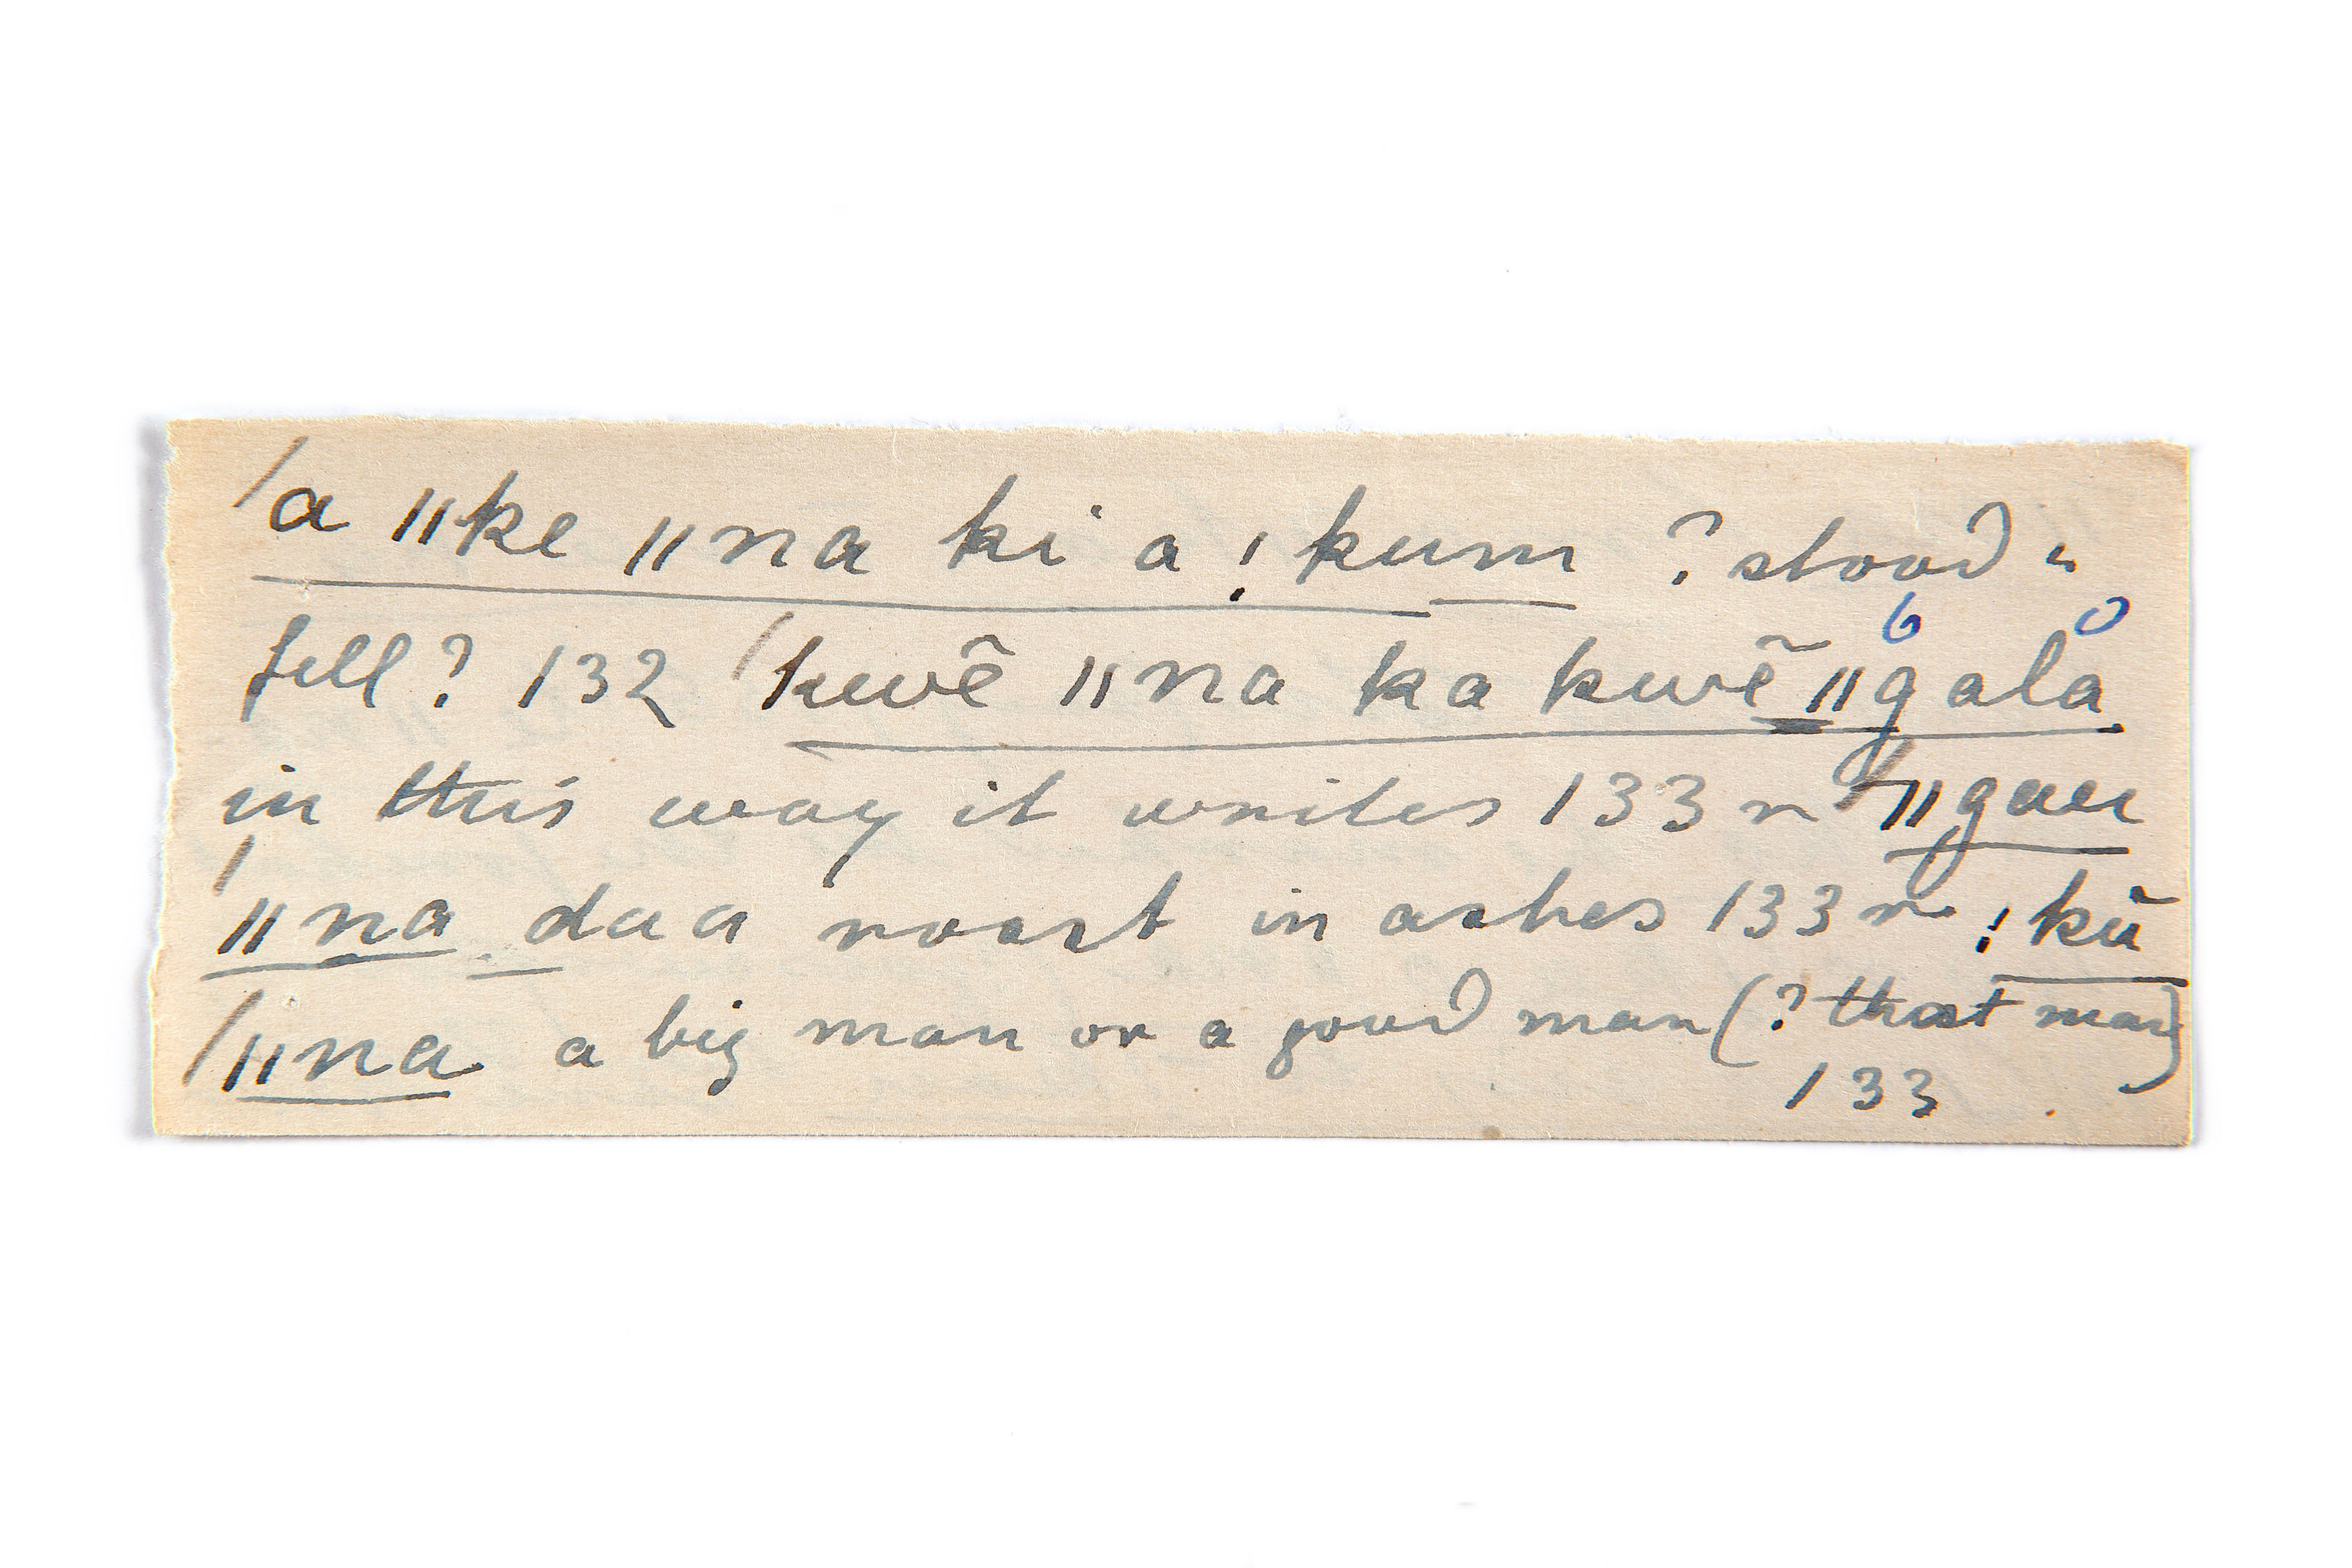 /a ǁke ǁna ki a !kum ? stood "
fell? 132 /kwẽ ǁna ka kwẽ ǁgala
6 0
in this way it writes 133 r /ǁgaei
/ǁna daa roast in ashes 133 r !kũ
/ǁna a big man or a good man (? that man)
133